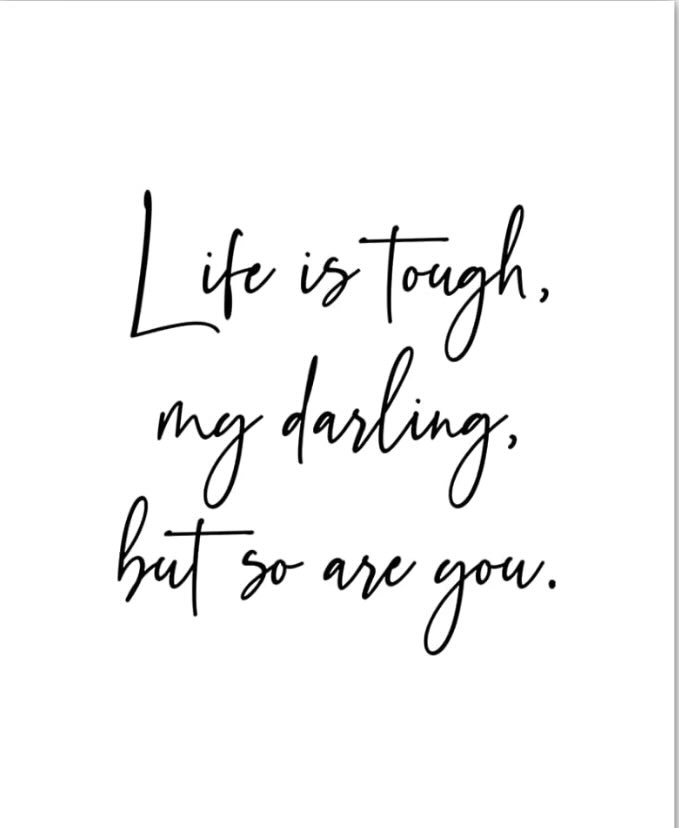 Life is tough,
my darling,
but so are you.